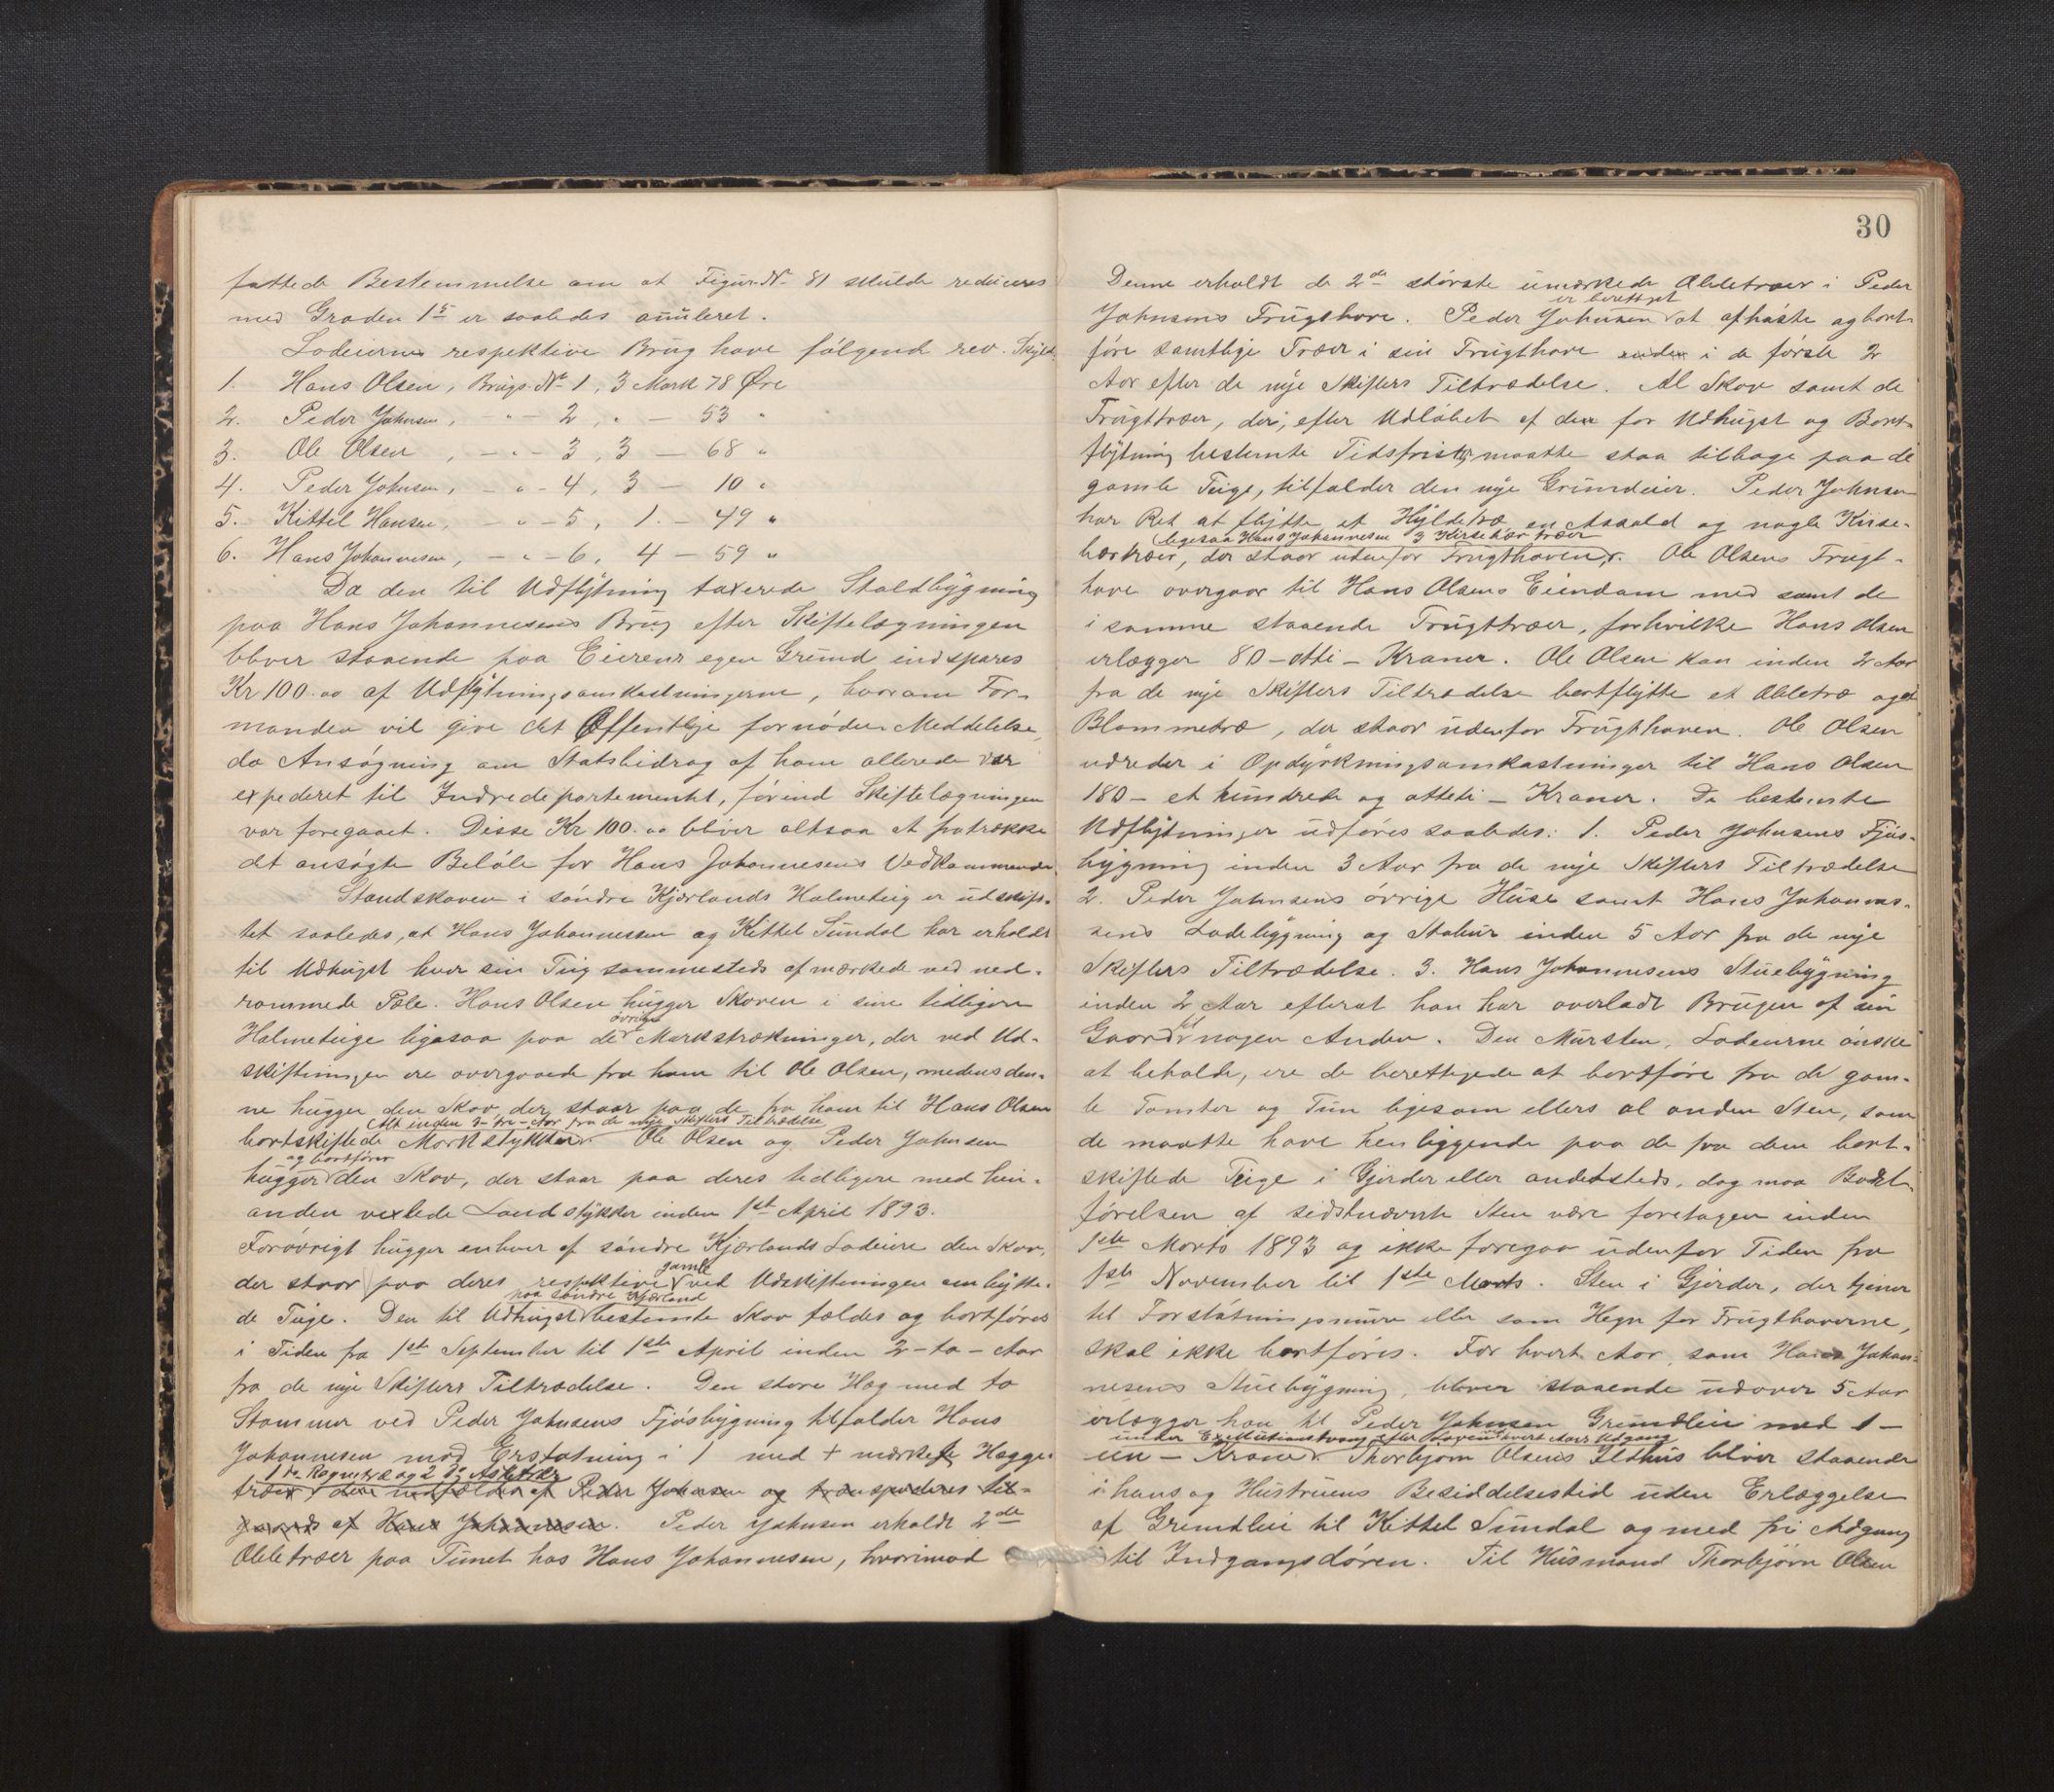 fattede Bestemmelse om at Figur N° 81 skulde reduceres
med Graden 15 er saaledes anuleret.
Lodeiernes respektive Brug have følgende rev. Skyld
1. Hans Olsen, Brugs-N° 1, 3 Mark 78 Øre
2. Peder Johnsen, - " - 2, " - 53 "
3. Ole Olsen, - " - 3, 3 - 68 "
4. Peder Johnsen, - " - 4, 3 - 10 "
5. Kittel Hansen, - " - 5, 1 - 49 "
6. Hans Johannesen, - " - 6, 4 - 59 "
Da den til Udflytning taxerede Staldbygning
paa Hans Johannesens Brug efter Skiftelægningen
bliver staaende paa Eierens egen Grund indspares
Kr 100.00 af Udflytningsomkostningerne, hvorom For-
manden vil give det Offentlige fornøden Meddelelse,
da Ansøgning om Statsbidrag af ham allerede var
expederet til Indredepartementet, førend Skiftelægningen
var foregaaet. Disse Kr 100.00 bliver altsaa at fratrække
det ansøgte Beløb for Hans Johannesens Vedkommende.
Standskoven i søndre Kjærlands Halmeteig er udskif-
tet saaledes, at Hans Johannessen og Kittel Sundal har erholdt
til Udhugst hver sin Teig sammesteds afmærkede ved ned-
rammede Pæle. Hans Olsen hugger Skoven i sine tidligere
Halmeteige ligesaa paa de øvrige Markstrækninger, der ved Ud-
skiftningen ere overgaaede fra ham til Ole Olsen, medens den-
ne hugger den Skov, der staar paa de fra ham til Hans Olsen
Alt inden 3-tre-Aar fra de nye Skifters Tiltrædelse
bortskiftede Markstykker. Ole Olsen og Peder Johnsen
og bortfører
hugger den Skov, der staar paa deres tidligere med hin-
anden vexlede Landstykker inden 1ste April 1893.
Forøvrigt hugger enhver af søndre Kjærlands Lodeiere den Skov,
der staar paa deres respektive gamle ved Udskiftningen ombytte-
paa søndre Kjærland
de Teige. Den til Udhugst bestemte Skov fældes og bortføres
i Tiden fra 1ste September til 1ste April inden 2-to-Aar
fra de nye Skifters Tiltrædelse. Den store Hæg med to
Stammer ved Peder Johnsens Fjøsbygning tilfalder Hans
Johannesen mod Erstatning i 1 med + mærket Hægge-
1 do Rognetræ og 2 do Asketrær
træer den nedfældes af Peder Johnsen og transporderes til-
gaards af Hans Johannesen. Peder Johnsen erholdt 2de
Æbletræer paa Tunet hos Hans Johannesen, hvorimod

30
Denne erholdt de 2de største umærkede Æbletræer i Peder
Johnsens Frugthave. Peder Johnsen er berettiget at afhøste og bort-
føre samtlige Træer i sin Frugthave inden i de første 2
Aar efter de nye Skifters Tiltrædelse. Al Skov samt de
Frugttræer, der, efter Udløbet af den for Udhugst og Bort-
flytning bestemte Tidsfrist, maatte staa tilbage paa de
gamle Teige, tilfalder den nye Grundeier. Peder Johnsen
har Ret at flytte et Hyldetræ, en Asaald og nogle Kirse-
ligesaa Hans Johannesen 3 Kirsebærtræer
bærtræer, der staar udenfor Frugthaven. Ole Olsens Frugt-
have overgaar til Hans Olsens Eiendom med samt de
i samme staaende Frugttræer, forhvilke Hans Olsen
erlægger 80-otti-Kroner. Ole Olsen kan inden 2 Aar
fra de nye Skifters Tiltrædelse bortflytte et Æbletræ og et
Blommetræ, der staar udenfor Frugthaven. Ole Olsen
udreder i Opdyrkningsomkostninger til Hans Olsen
180- et hundrede og otteti - Kroner. De bestemte
Udflytninger udføres saaledes: 1. Peder Johnsens Fjøs-
bygning inden 3 Aar fra de nye Skifters Tiltrædelse
2. Peder Johnsens øvrige Huse samt Hans Johannes-
sens Ladebygning og Stabur inden 5 Aar fra de nye
Skifters Tiltrædelse. 3. Hans Johannesens Stuebygning
inden 2 Aar efterat han har overladt Brugen af sin
Gaard til nogen Anden. Den Mursten, Lodeierne ønske
at beholde, ere de berettigede at bortføre fra de gam-
le Tomter og Tun ligesom ellers al anden Sten, som
de maatte have henliggende paa de fra dem bort-
skiftede Teige i Gjerder eller andetsteds, dog maa Bort-
førelsen af sidstnævnte Sten være foretagen inden
1ste Marts 1893 og ikke foregaa udenfor Tiden fra
1ste November til 1ste Marts. Sten i Gjerder, der tjener
til Forstøtningsmure eller som Hegn for Frugthaverne,
skal ikke bortføres. For hvert Aar, som Hans Johan-
nesens Stuebygning, bliver staaende udover 5 Aar
erlægger han til Peder Johnsen Grundleie med 1-
under Exekutionstvang efter Loven hvert Aars Udgang
een - Krone. Thorbjørn Olsens Ildhus bliver staaende
i hans og Hustruens Besiddelsestid uden Erlæggelse
af Grundleie til Kittel Sundal og med fri Adgang
til Indgangsdøren. Til Husmand Thorbjørn Olsen